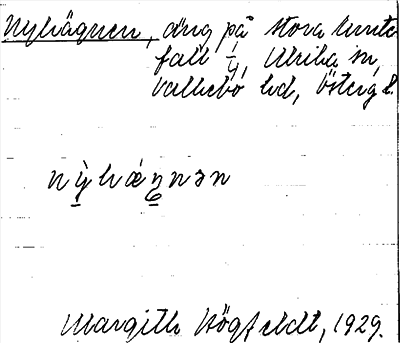 Nyhägnen, äng på Stora Lunte-
fall 1/4, Ulrika sn,
Valkebo hd, Östergl.
nỳhæŋnən
Margith Högfeldt, 1929.